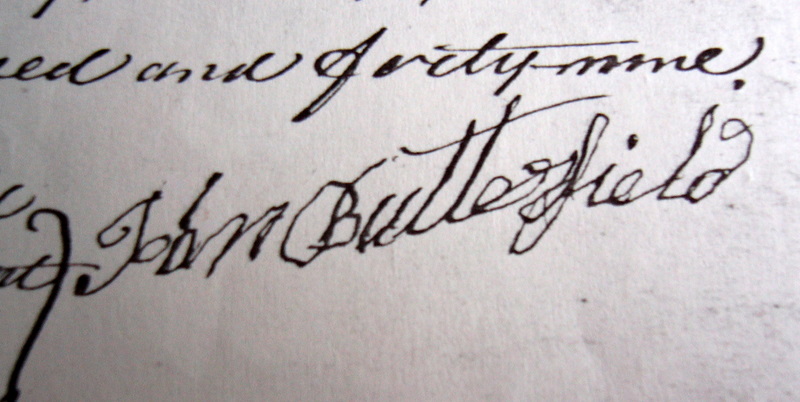 and forty-nine.
John Butterfield